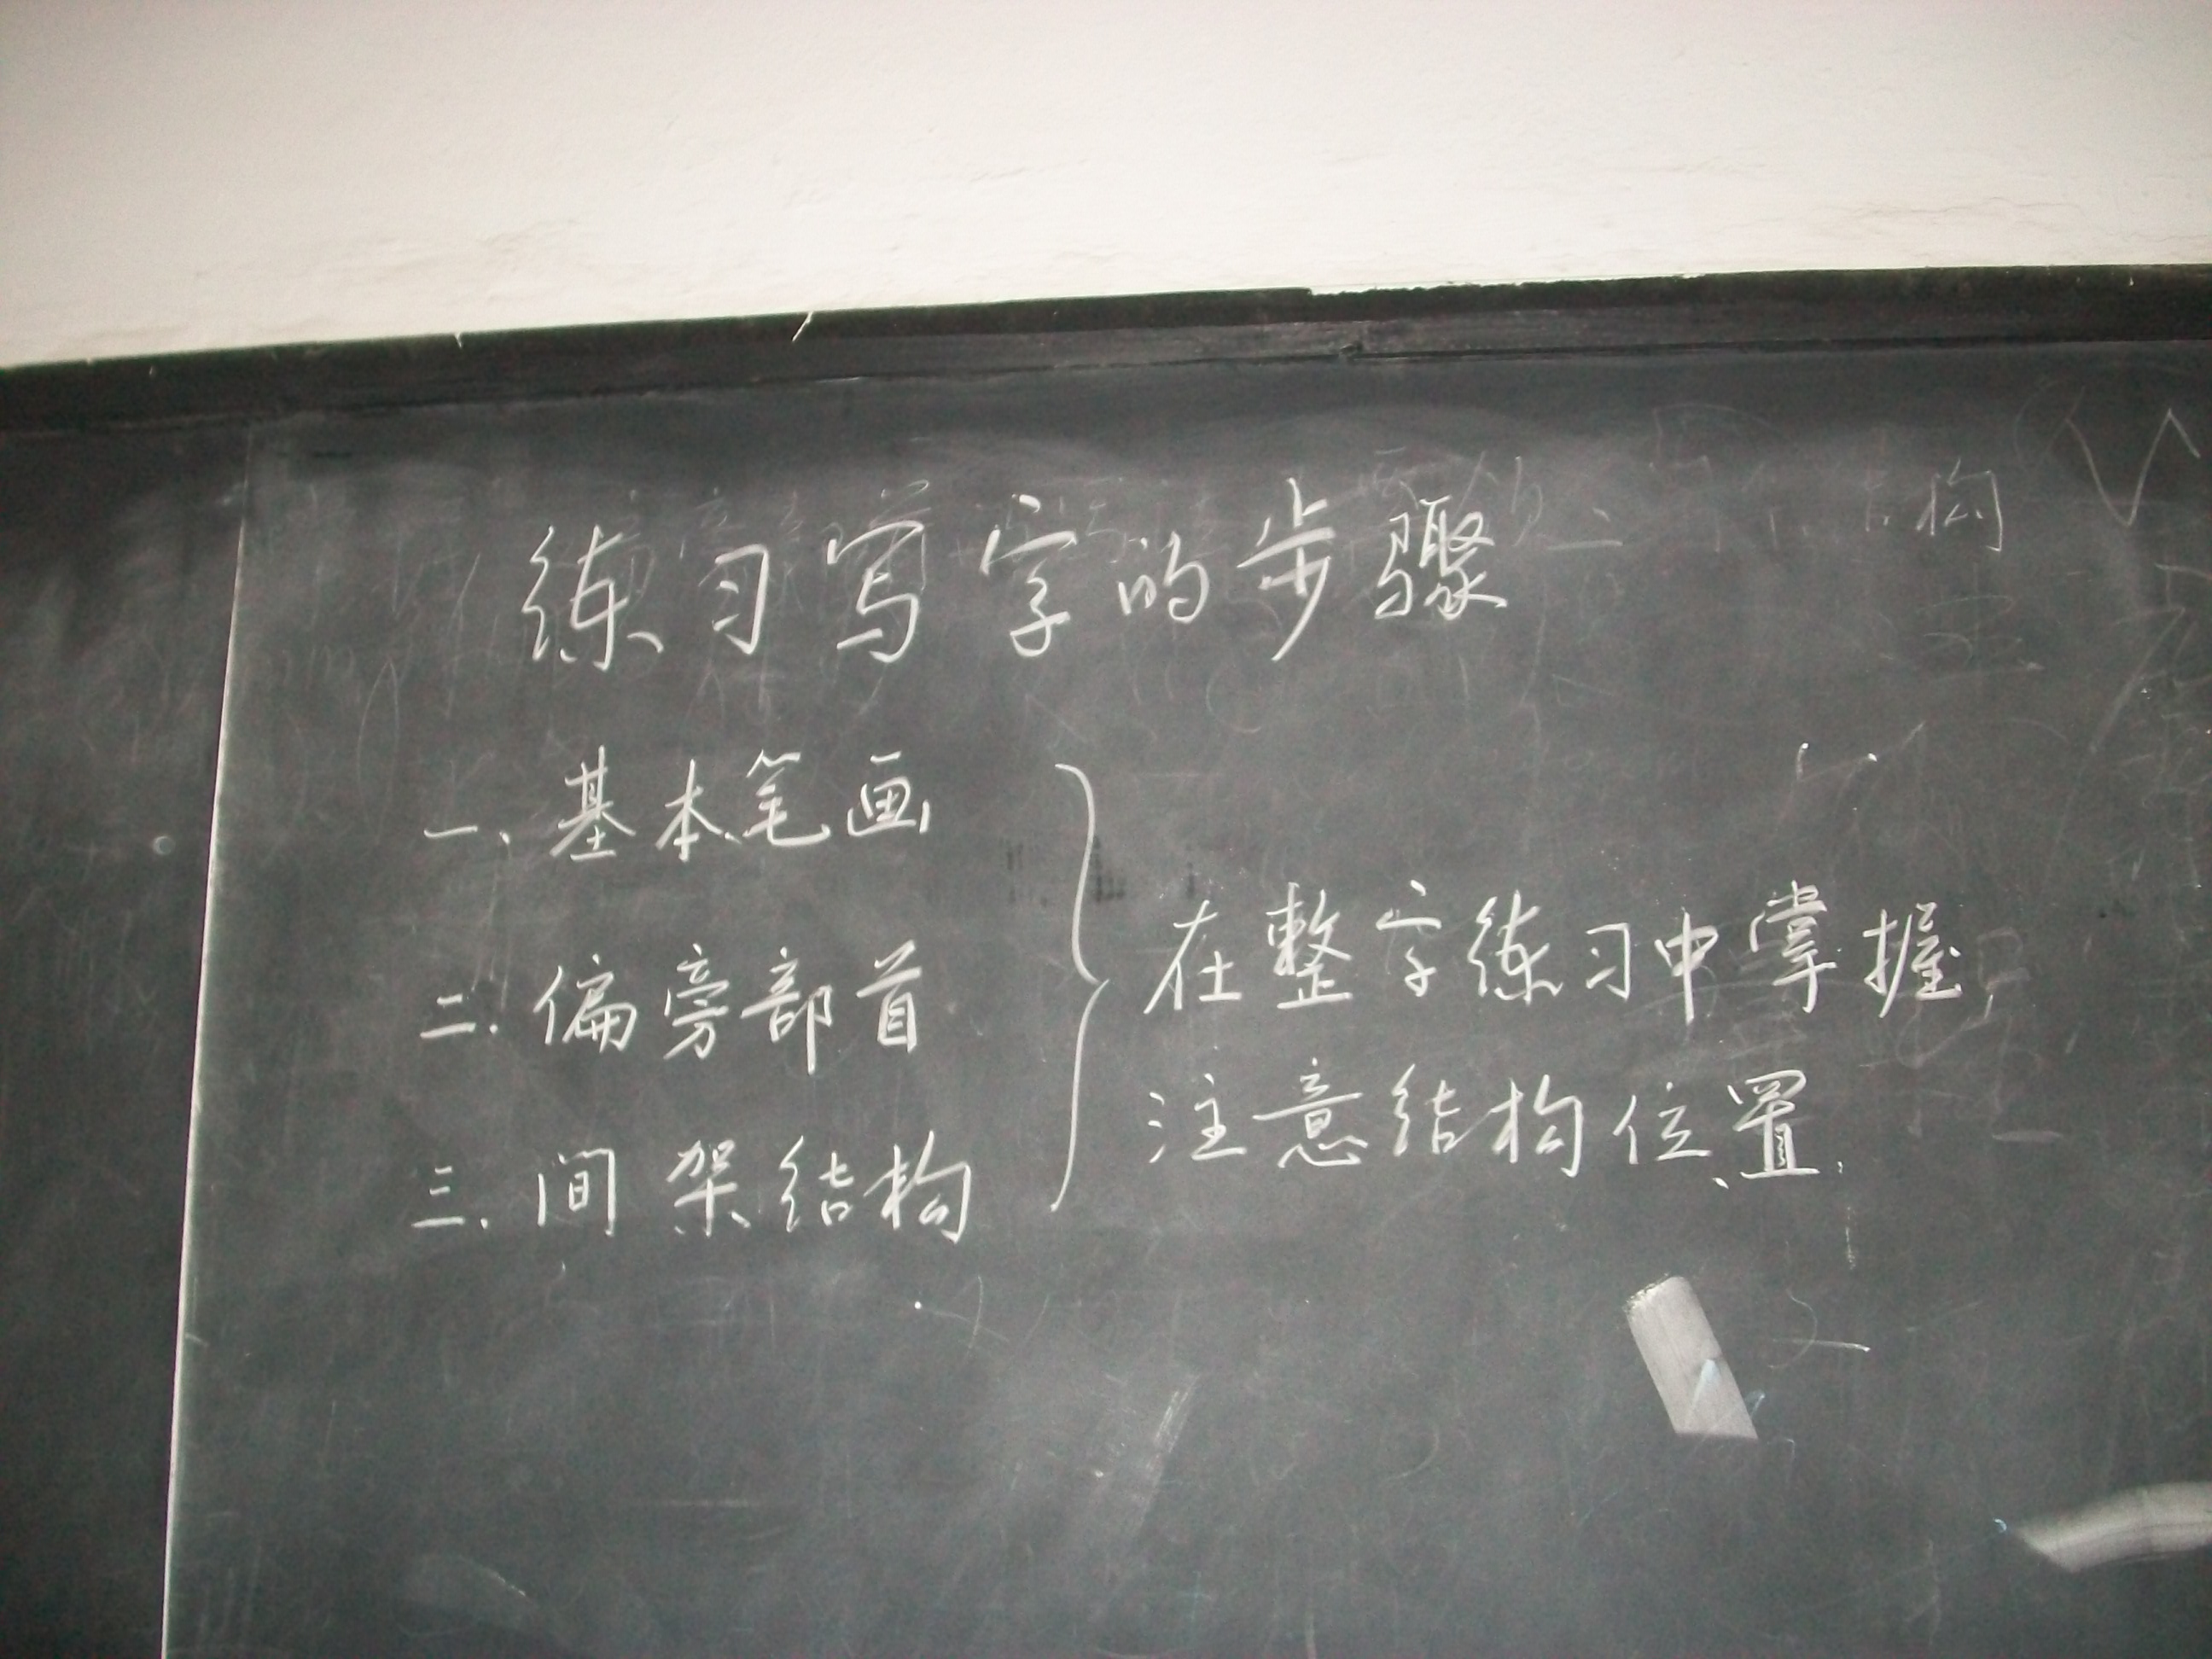 练习写字的步骤
一.基本笔画
二.偏旁部首
三.间架结构
在整字练习中掌握,
注意结构位置.
构